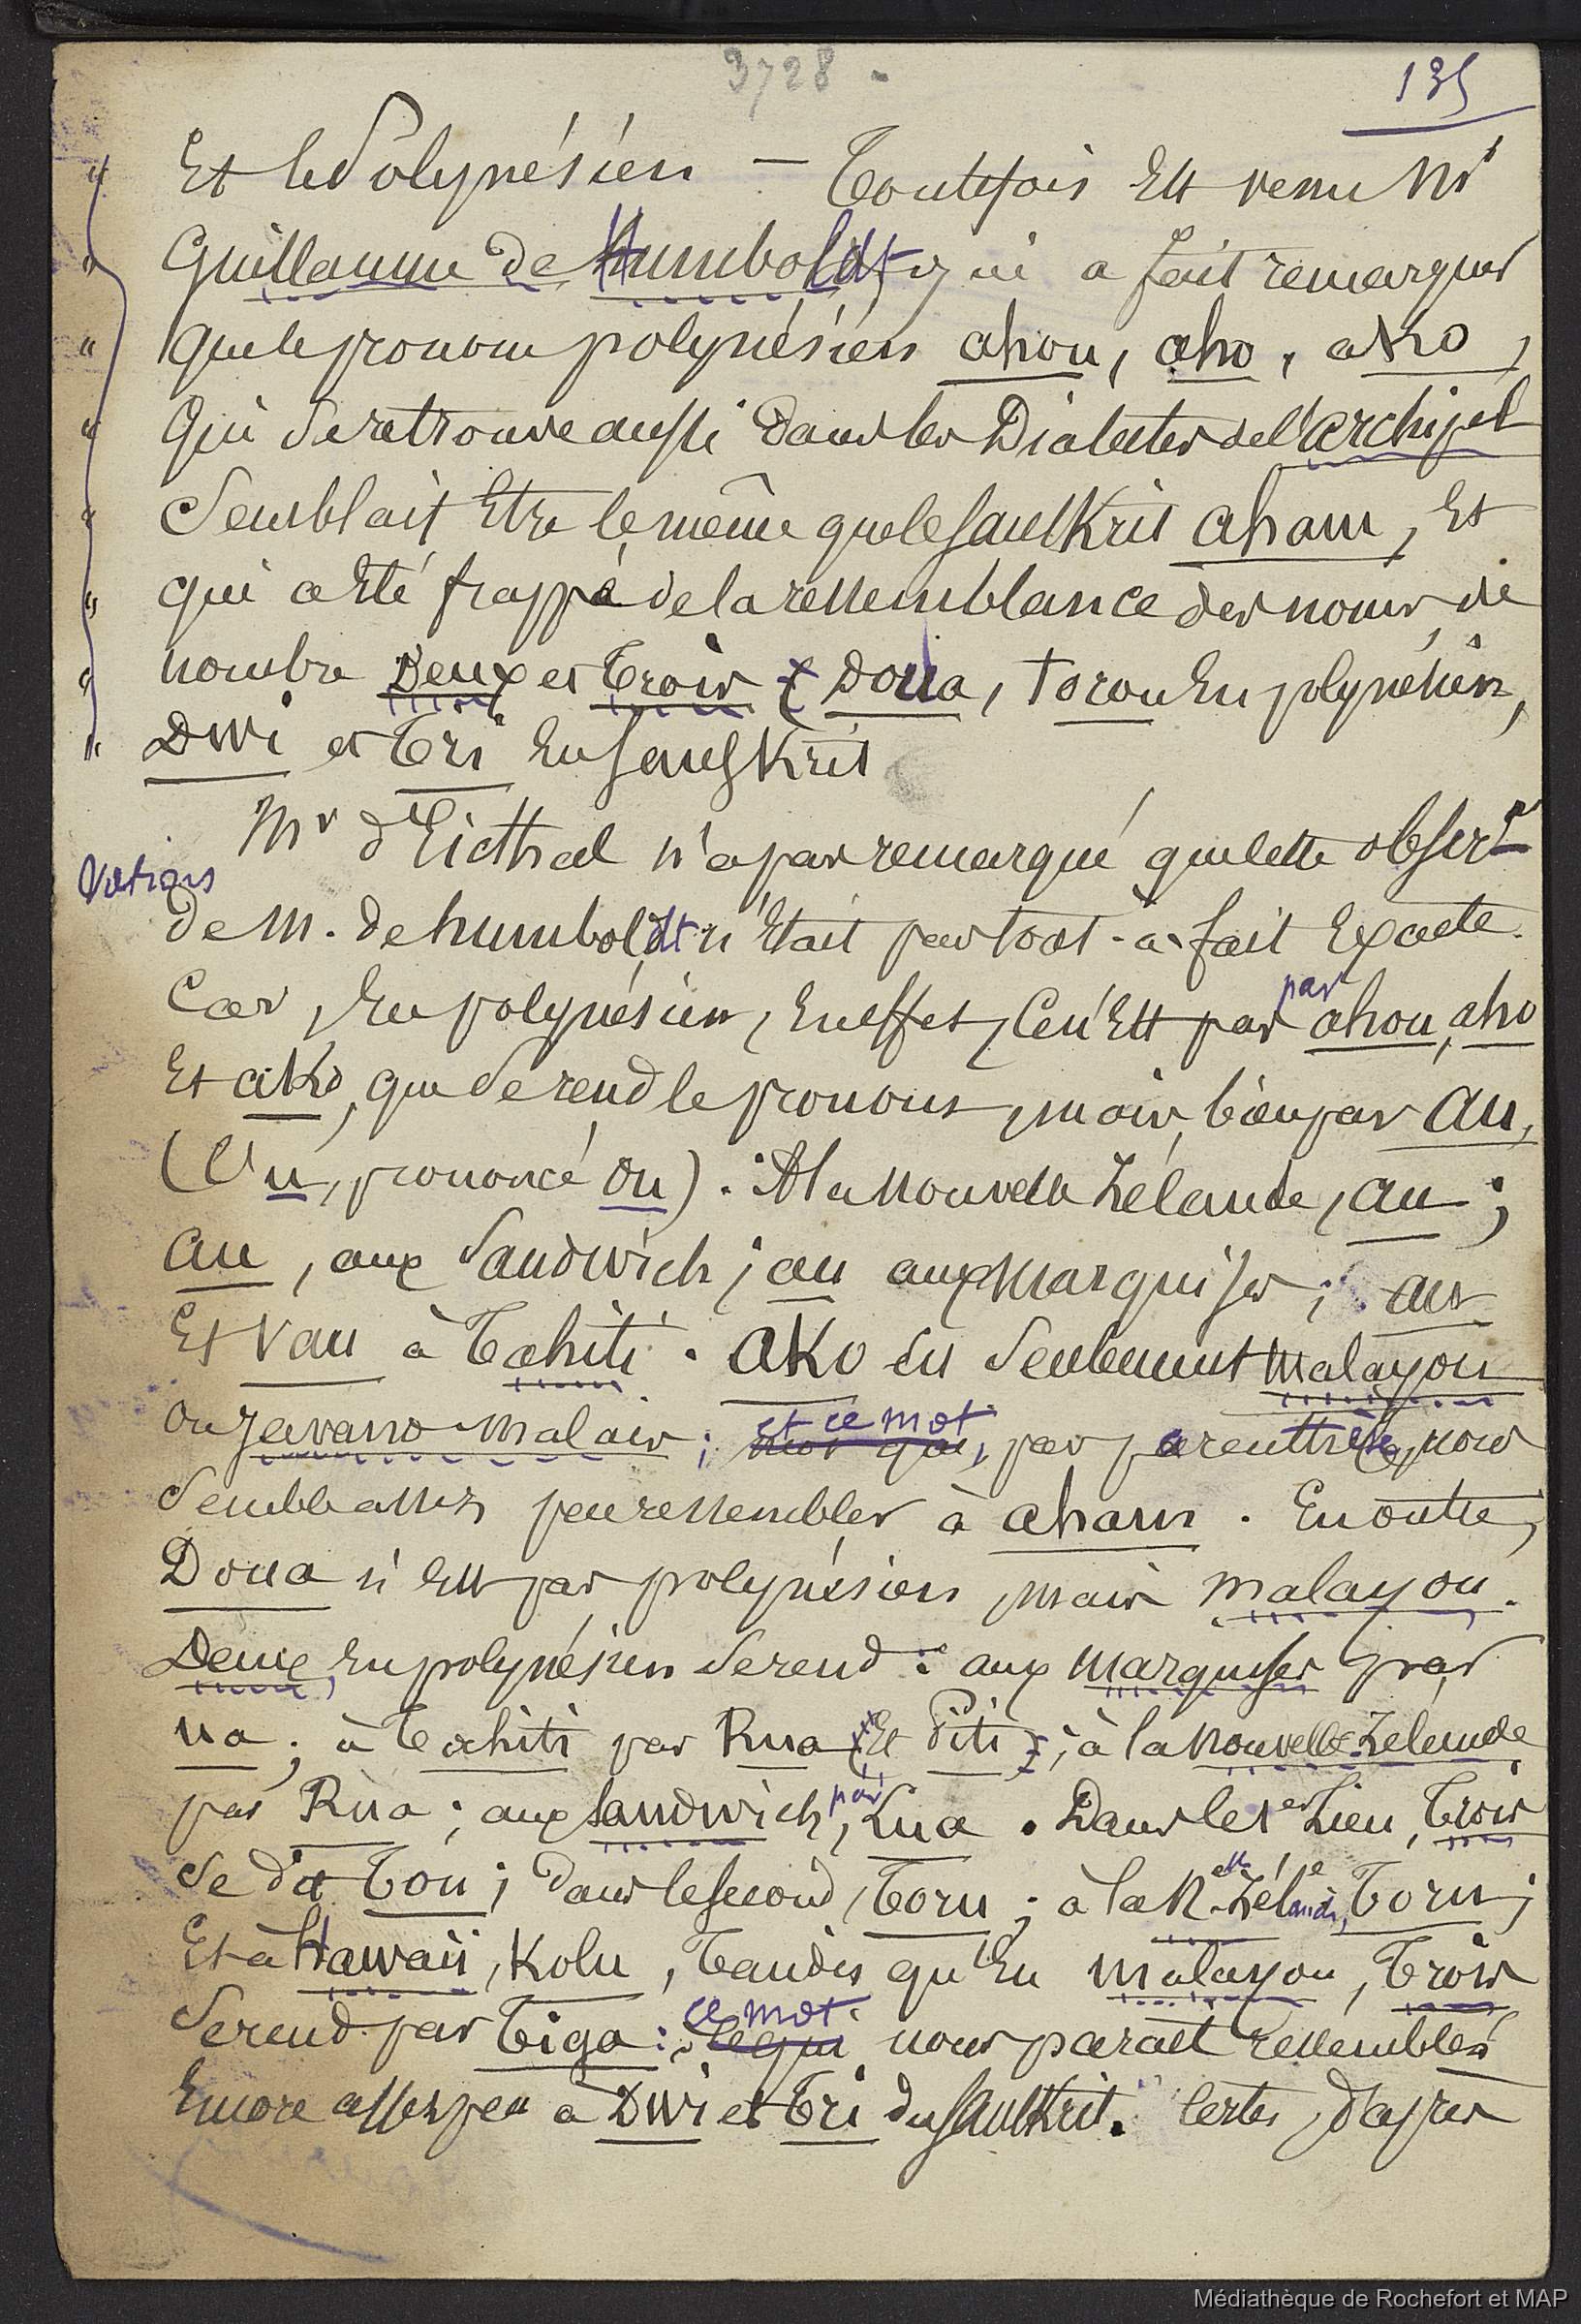 3728 -
135
Et le Polynésien — Toutefois est venu Mr
Guillaume de Humboldt qui a fait remarquer
que le pronom polynésien ahou, aho, ako,
qui se retrouve aussi dans les Dialectes de l'archipel
semblait être le même que le sanskrit aham, et
qui a été frappé de la ressemblance des noms de
nombre Deux et Trois (Doua, torou en polynésien,
Dwi et Tri en sanskrit
Mr d'Eicthal n'a pas remarqué que cette obser-
vations
de M. de humboldt n'était pas tout-à-fait exacte.
Car, en polynésien, en effet, ce n'est pas par ahou, aho
et ako, que se rend le pronom, mais bien par au,
(l'u, prononcé ou). A la Nouvelle Zélande, au;
au, aux Sandwich; au aux Marquises; au
et vau à Tahiti. ako est seulement malayou
ou javano-malais; et ce mot, par parenthèse, nous
semble assez peu ressembler à aham. En outre,
Doua n'est pas polynésien, mais malayou.
Deux, en polynésien se rend: aux marquises par
ua; à Tahiti par Rua (et Piti); à la nouvelle-Zélande
par Rua; aux sandwich, par Lua. Dans le 1er lieu, Trois
se dit Tou; dans le second, Toru; à la Nelle Zélande, Toru;
et à Hawaii, Kolu, tandis qu'en malayou, Trois
se rend par Tiga: ce mot nous parait ressembler
encore assez peu à Dwi et Tri du sanskrit. Certes, d'après
Médiathèque de Rochefort et MAP